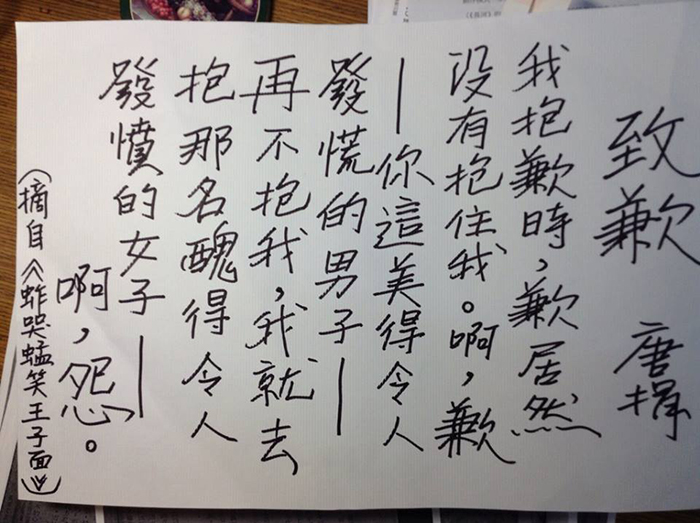 致歉　唐捐
我抱歉時，歉居然
沒有抱住我。啊，歉
—你這美得令人
發慌的男子—
再不抱我，我就去
抱那名醜得令人
發憤的女子—
啊，怨。
（摘自《蚱哭蜢笑王子面》）